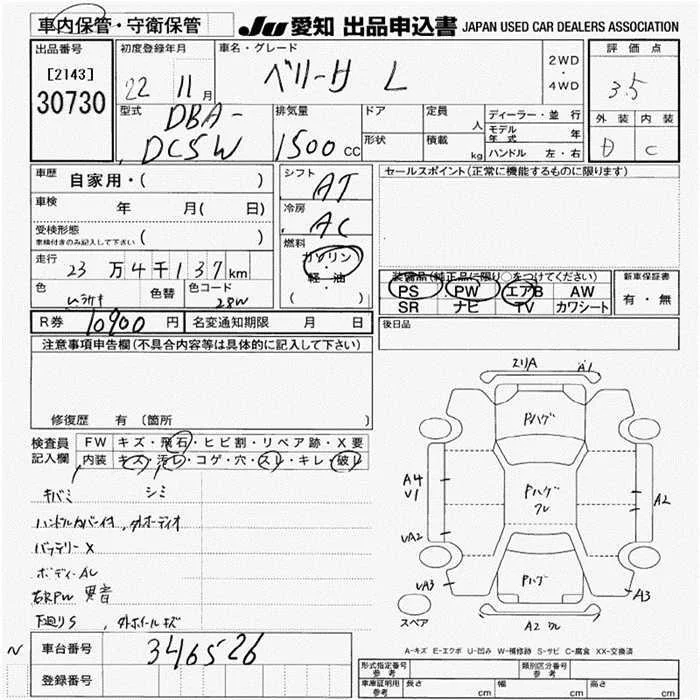 車内保管・守衛保管
JU 愛知 出品申込書 JAPAN USED CAR DEALERS ASSOCIATION
出品番号
[2143]
30730
初度登録年月
22 11月
車名・グレード
ベリーサ L
2WD・4WD
評価点
3.5
外装 内装
D C
型式
DBA-
DC5W
排気量
1500cc
ドア
形状
定員 人
積載 kg
ディーラー・並行
モデル年式 年
ハンドル 左・右
車歴 自家用・( )
車検 年 月( 日)
受検形態
車検付きのみ記入して下さい ( )
走行 23万4千137km
色 色替 色コード
28W
シフト
AT
冷房
AC
燃料
ガソリン・軽・油
( )
セールスポイント(正常に機能するものに限ります)
装備品(純正品に限り○をつけてください)
PS PW エアB AW
SR ナビ TV カワシート
新車保証書
有・無
R券 10900円 名変通知期限 月 日
後日品
注意事項申告欄(不具合内容等は具体的に記入して下さい)
修復歴 有 〔箇所
検査員記入欄
FW キズ・飛石・ヒビ割・リペア跡・X要
内装 キズ・汚レ・コゲ・穴・スレ・キレ・破レ
キバミ シミ
ハンドルカバーイタ、外オーディオ
バッテリーX
ボディーAC
右RPW 異音
下廻りS、外ホイールキズ
A1
Pハゲ
A4
V1
Pハゲ
クレ
A2
UA2
UA3
Pハゲ
A3
スペア
A2 クレ
A-キズ E-エクボ U-凹み W-補修跡 S-サビ C-腐食 XX-交換済
N 車台番号 346526
登録番号
形式指定番号 参考
類別区分番号 参考
車庫証明用 参考 長さ cm 幅 cm 高さ cm